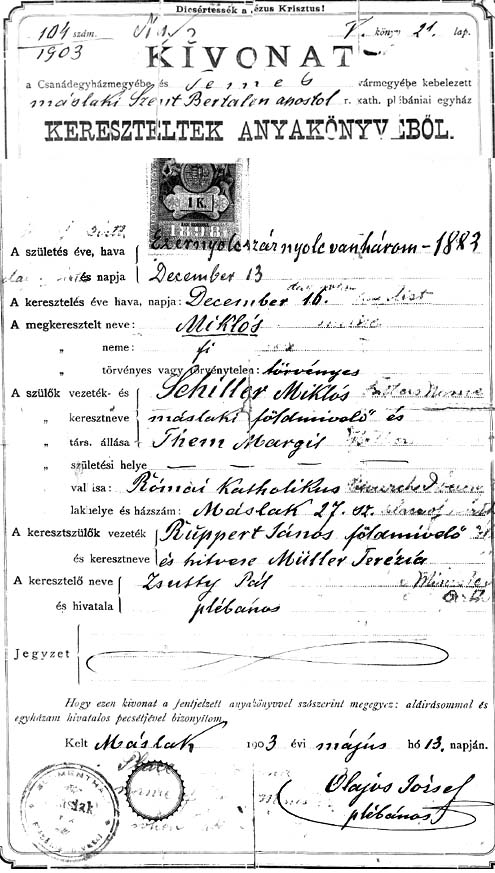 Dicsértessék a Jézus Krisztus!
104 szám. V. könyv 21. lap.
1903
KIVONAT
a Csanádegyházmegyébe és Temes vármegyébe kebelezett
máslaki Szent Bertalen apostol r. kath. plébániai egyház
KERESZTELTEK ANYAKÖNYVÉBŐL.
1 K
1898
A születés éve, hava Ezernyolcszáznyolcvanhárom - 1883
és napja December 13
A keresztelés éve hava, napja: December 16.
A megkeresztelt neve: Miklós
„ neme: fi
„ törvényes vagy törvénytelen: törvényes
A szülők vezeték- és Schiller Miklós
„ keresztneve máslaki földmivelő és
„ társ. állása Them Margit
„ születési helye
„ vallása: Római Katholikus
„ lakhelye és házszám: Máslak 27. sz.
A keresztszülők vezeték Ruppert János földmivelő
és keresztneve és hitvese Müller Terézia
A keresztelő neve Zsutty Pál
és hivatala plébános
Jegyzet
Hogy ezen kivonat a fentjelzett anyakönyvvel szószerint megegyez: aláirásommal és
egyházam hivatalos pecsétjével bizonyitom.
Kelt Máslak 1903 évi május hó 13. napján.
Place
Olajos József
plébános